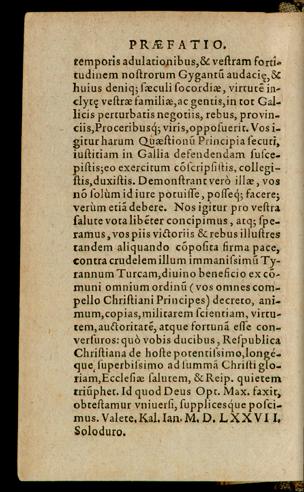 PRÆFATIO.
temporis adulationibus,& vestram forti-
tudinem nostrorum Gygantũ audacię,&
huius deniq; sæculi socordiæ, virtutẽ in-
clytę vestræ familiæ, ac gentis, in tot Gal-
licis perturbatis negotiis, rebus, provin-
ciis, Proceribusq; viris, opposuerit. Vos i-
gitur harum Quæstionũ Principia secuti,
iustitiam in Gallia defendendam susce-
pistis; eo exercitum cõscripsistis, collegi-
stis, duxistis. Demonstrant verò illæ, vos
nõ solùm id iure potuisse, posseq; facere;
verùm etiã debere. Nos igitur pro vestra
salute vota libẽter concipimus, atq; spe-
ramus, vos piis victoriis & rebus illustres
tandem aliquando cõposita firma pace,
contra crudelem illum immanissimũ Ty-
rannum Turcam, diuino beneficio ex cõ-
muni omnium ordinũ (vos omnes com-
pello Christiani Principes) decreto, ani-
mum, copias, militarem scientiam, virtu-
tem, auctoritatẽ, atque fortunã esse con-
versuros: quò vobis ducibus, Respublica
Christiana de hoste potentissimo, longé-
que superbissimo ad summã Christi glo-
riam, Ecclesiæ salutem, & Reip. quietem
triũphet. Id quod Deus Opt. Max. faxit,
obtestamur vniuersi, supplicesque posci-
mus. Valete. Kal. Ian. M. D. LXXVII.
Soloduro.